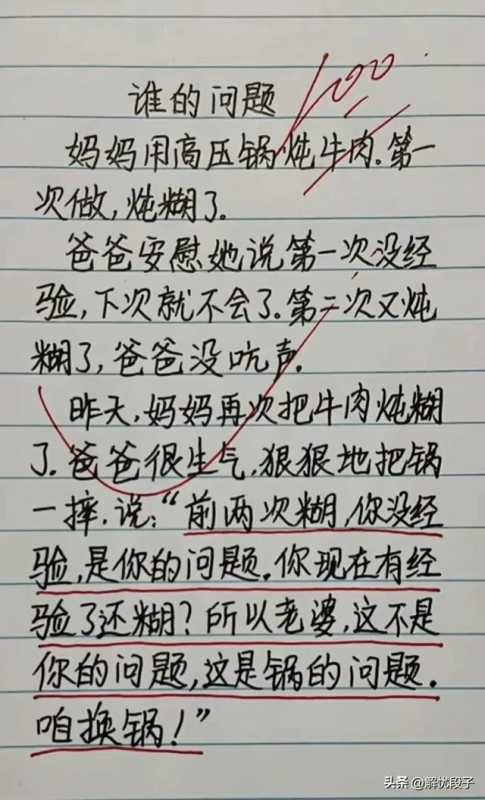 100
谁的问题
妈妈用高压锅炖牛肉.第一
次做,炖糊了.
爸爸安慰她说第一次没经
验,下次就不会了.第二次又炖
糊了,爸爸没吭声.
昨天,妈妈再次把牛肉炖糊
了.爸爸很生气,狠狠地把锅
一摔.说:“前两次糊,你没经
验,是你的问题.你现在有经
验了还糊?所以老婆,这不是
你的问题,这是锅的问题.
咱换锅!”
头条 @解忧段子